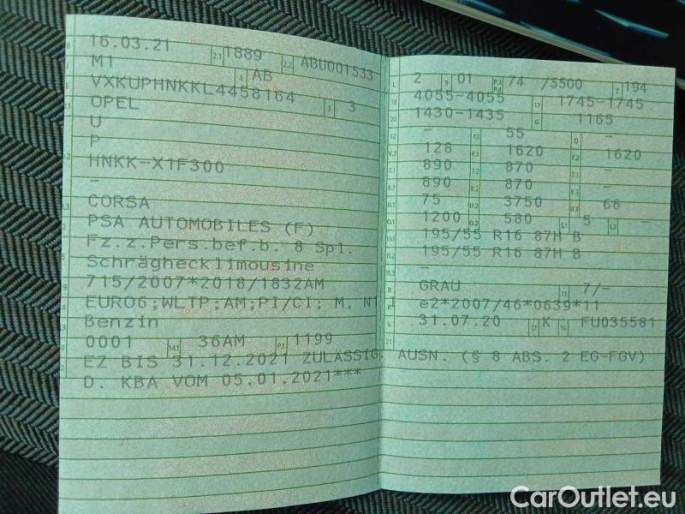 16.03.21 1889 ABU001533
M1 AB
VXKUPHNKKL4458164 3
OPEL
U
P
HNKK-X1F300
-
CORSA
PSA AUTOMOBILES (F)
Fz.z.Pers.bef.b. 8 Spl.
Schräghecklimousine
715/2007*2018/1832AM
EURO6;WLTP;AM;PI/CI; M, N1 I
Benzin
0001 36AM 1199
EZ BIS 31.12.2021 ZULÄSSIG. AUSN. (§ 8 ABS. 2 EG-FGV)
D. KBA VOM 05.01.2021***
2 01 74 /5500 194
4055-4055 1745-1745
1430-1435 1165
- 55 -
128 1620 1620
890 870 -
890 870 -
75 3750 66
1200 580 5 -
195/55 R16 87H B
195/55 R16 87H B
-
GRAU 7/-
e2*2007/46*0639*11
31.07.20 K FU035581
CarOutlet.eu